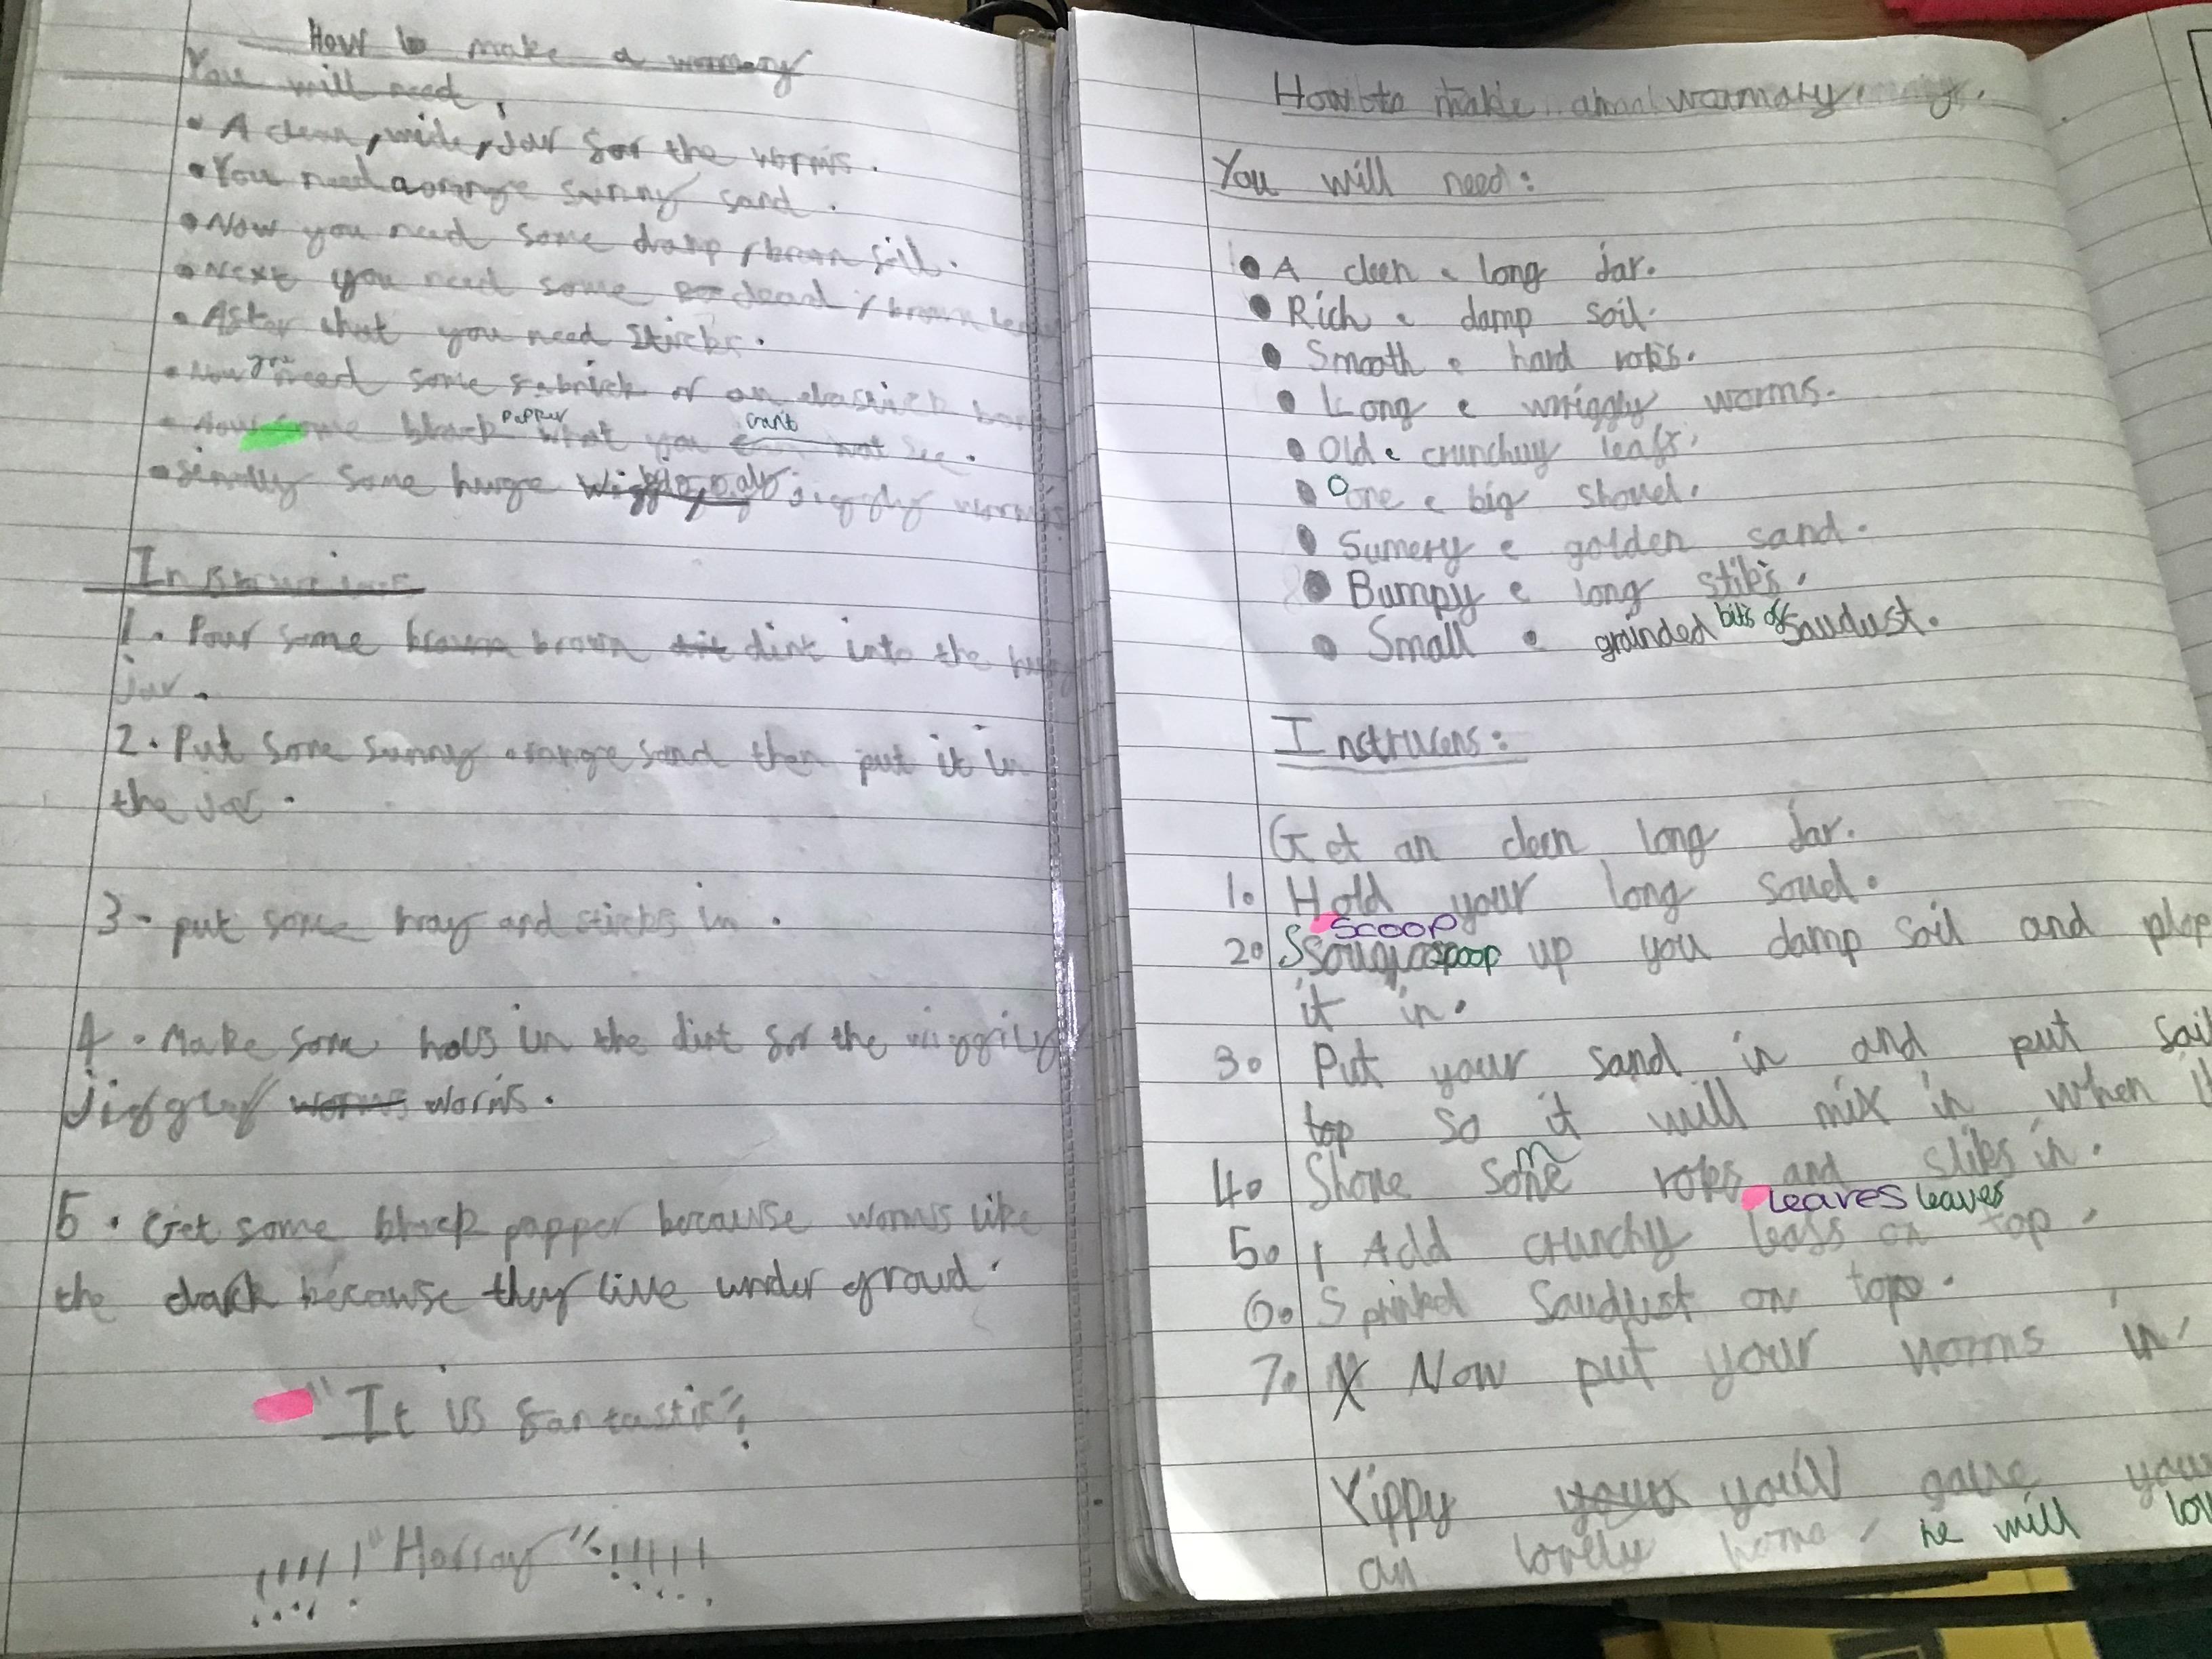 How to make a womery
You will need,
• A clean, wide, Jar for the worms.
• You need a orange sunny sand.
• Now you need some damp, brown soil.
• Next you need some dead, brown
• After that you need Sticks.
• Now you need some fabrick or an elastick
• some black papper what you can't see.
• finally some huge jiggly worms

1. Pour some brown dirt into the
jar.
2. Put some sunny orange sand then put it in
the jar.
3. put some hay and sticks in.
4. Make some hols in the dirt for the wiggily
jiggley worms.
5. Get some black papper because worms like
the dark because they live under groud.
"It is fantastic"!
!!!!! "Horray" !!!!!!
How to make a wormary.
You will need:
• A cleen, long Jar.
• Rich, damp soil.
• Smooth, hard roks.
• Long, wriggly worms.
• Old, crunchuy leafs,
• One, big shovel.
• Sumery, golden sand.
• Bumpy, long stiks,
• Small, grainded bits of sawdust.
Instrucens:
Get an cleen long Jar.
1. Hold your long sovel.
scoop
2. up you damp soil and plop
it in.
3. Put your sand in and put soil
top so it will mix in when
4. Shove some roks and stiks in.
leaves leaves
5. Add crunchy leafs on top.
6. Sprinkel Sawdust on top.
7. Now put your worms in
Yippy you'll gave
an lovely home, he will